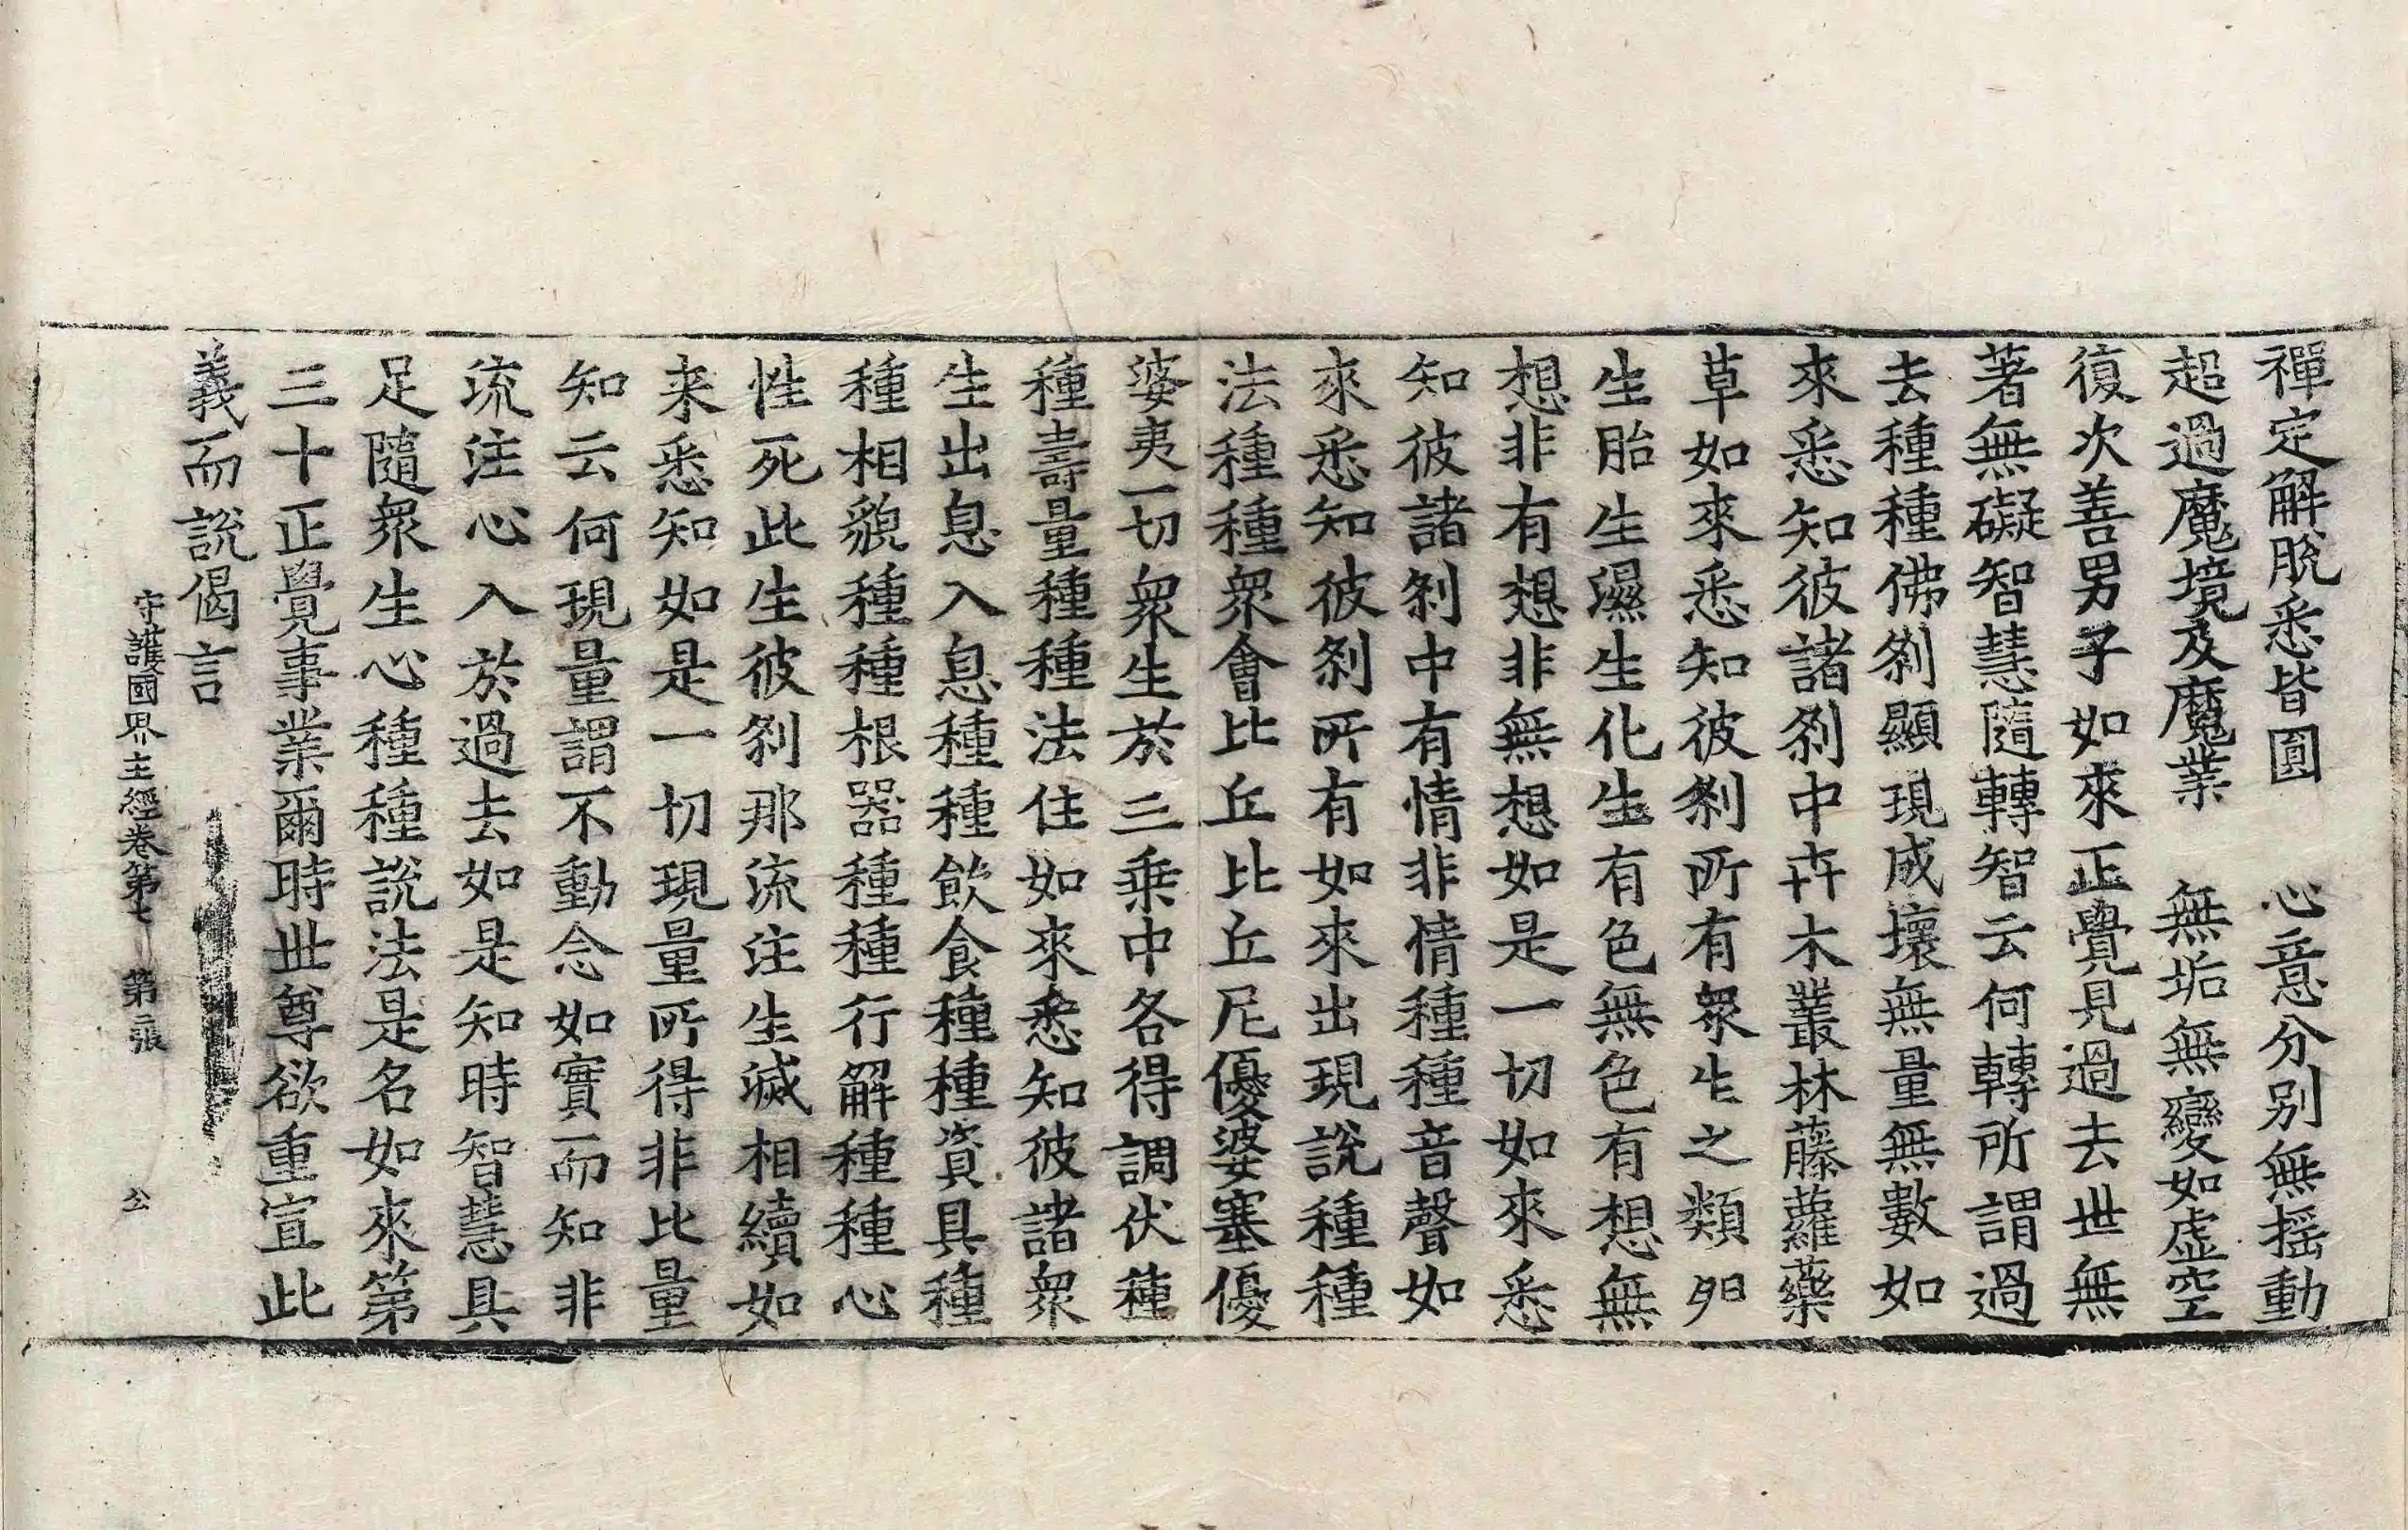 禪定解脫悉皆圓　心意分别無揺動
超過魔境及魔業　無垢無變如虛空
復次善男子如來正覺見過去世無
著無礙智慧隨轉智云何轉所謂過
去種種佛刹顯現成壞無量無數如
來悉知彼諸刹中卉木叢林藤蘿藥
草如來悉知彼刹所有衆生之類卵
生胎生濕生化生有色無色有想無
想非有想非無想如是一切如來悉
知彼諸刹中有情非情種種音聲如
來悉知彼刹所有如來出現說種種
法種種衆會比丘比丘尼優婆塞優
婆夷一切衆生於三乗中各得調伏種
種壽量種種法住如來悉知彼諸衆
生出息入息種種飲食種種資具種
種相貌種種根器種種行解種種心
性死此生彼刹那流注生滅相續如
来悉知如是一切現量所得非比量
知云何現量謂不動念如實而知非
流注心入於過去如是知時智慧具
足隨衆生心種種說法是名如來第
三十正覺事業爾時世尊欲重宣此
義而說偈言
守護國界主經卷第七　第二張　公